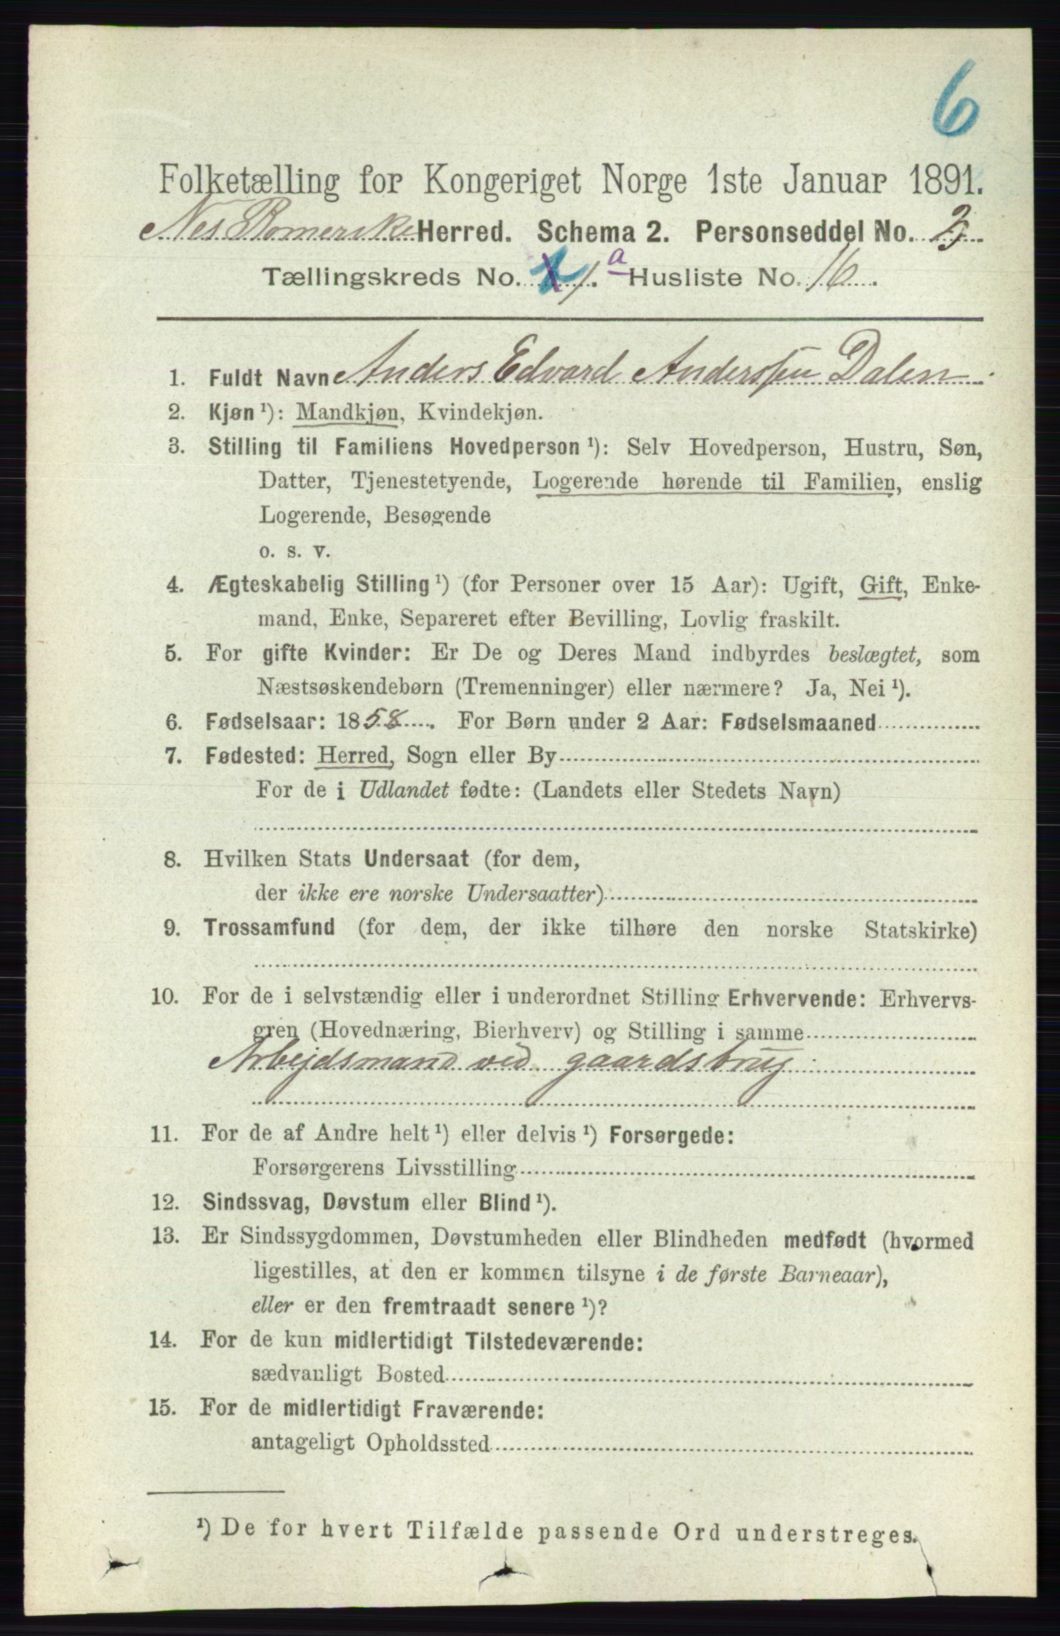 6
Folketælling for Kongeriget Norge 1ste Januar 1891.
Nes Romerike Herred. Schema 2. Personseddel No.
Tællingskreds No. 1. a Husliste No. 16.
1. Fuldt Navn Anders Edvard Anderssen Dalen.
2. Kjøn ¹): Mandkjøn, Kvindekjøn.
3. Stilling til Familiens Hovedperson ¹): Selv Hovedperson, Hustru, Søn,
Datter, Tjenestetyende, Logerende hørende til Familien, enslig
Logerende, Besøgende
o. s. v.
4. Ægteskabelig Stilling ¹) (for Personer over 15 Aar): Ugift, Gift, Enke-
mand, Enke, Separeret efter Bevilling, Lovlig fraskilt.
5. For gifte Kvinder: Er De og Deres Mand indbyrdes beslægtet, som
Næstsøskendebørn (Tremenninger) eller nærmere? Ja, Nei ¹).
6. Fødselsaar: 1858. For Børn under 2 Aar: Fødselsmaaned
7. Fødested: Herred, Sogn eller By
For de i Udlandet fødte: (Landets eller Stedets Navn)
8. Hvilken Stats Undersaat (for dem,
der ikke ere norske Undersaatter)
9. Trossamfund (for dem, der ikke tilhøre den norske Statskirke)
10. For de i selvstændig eller i underordnet Stilling Erhvervende: Erhvervs-
gren (Hovednæring, Bierhverv) og Stilling i samme
Arbejdsmand ved gaardsbrug.
11. For de af Andre helt ¹) eller delvis ¹) Forsørgede:
Forsørgerens Livsstilling
12. Sindssvag, Døvstum eller Blind ¹).
13. Er Sindssygdommen, Døvstumheden eller Blindheden medfødt (hvormed
ligestilles, at den er kommen tilsyne i de første Barneaar),
eller er den fremtraadt senere ¹)?
14. For de kun midlertidigt Tilstedeværende:
sædvanligt Bosted
15. For de midlertidigt Fraværende:
antageligt Opholdssted
¹) De for hvert Tilfælde passende Ord understreges.